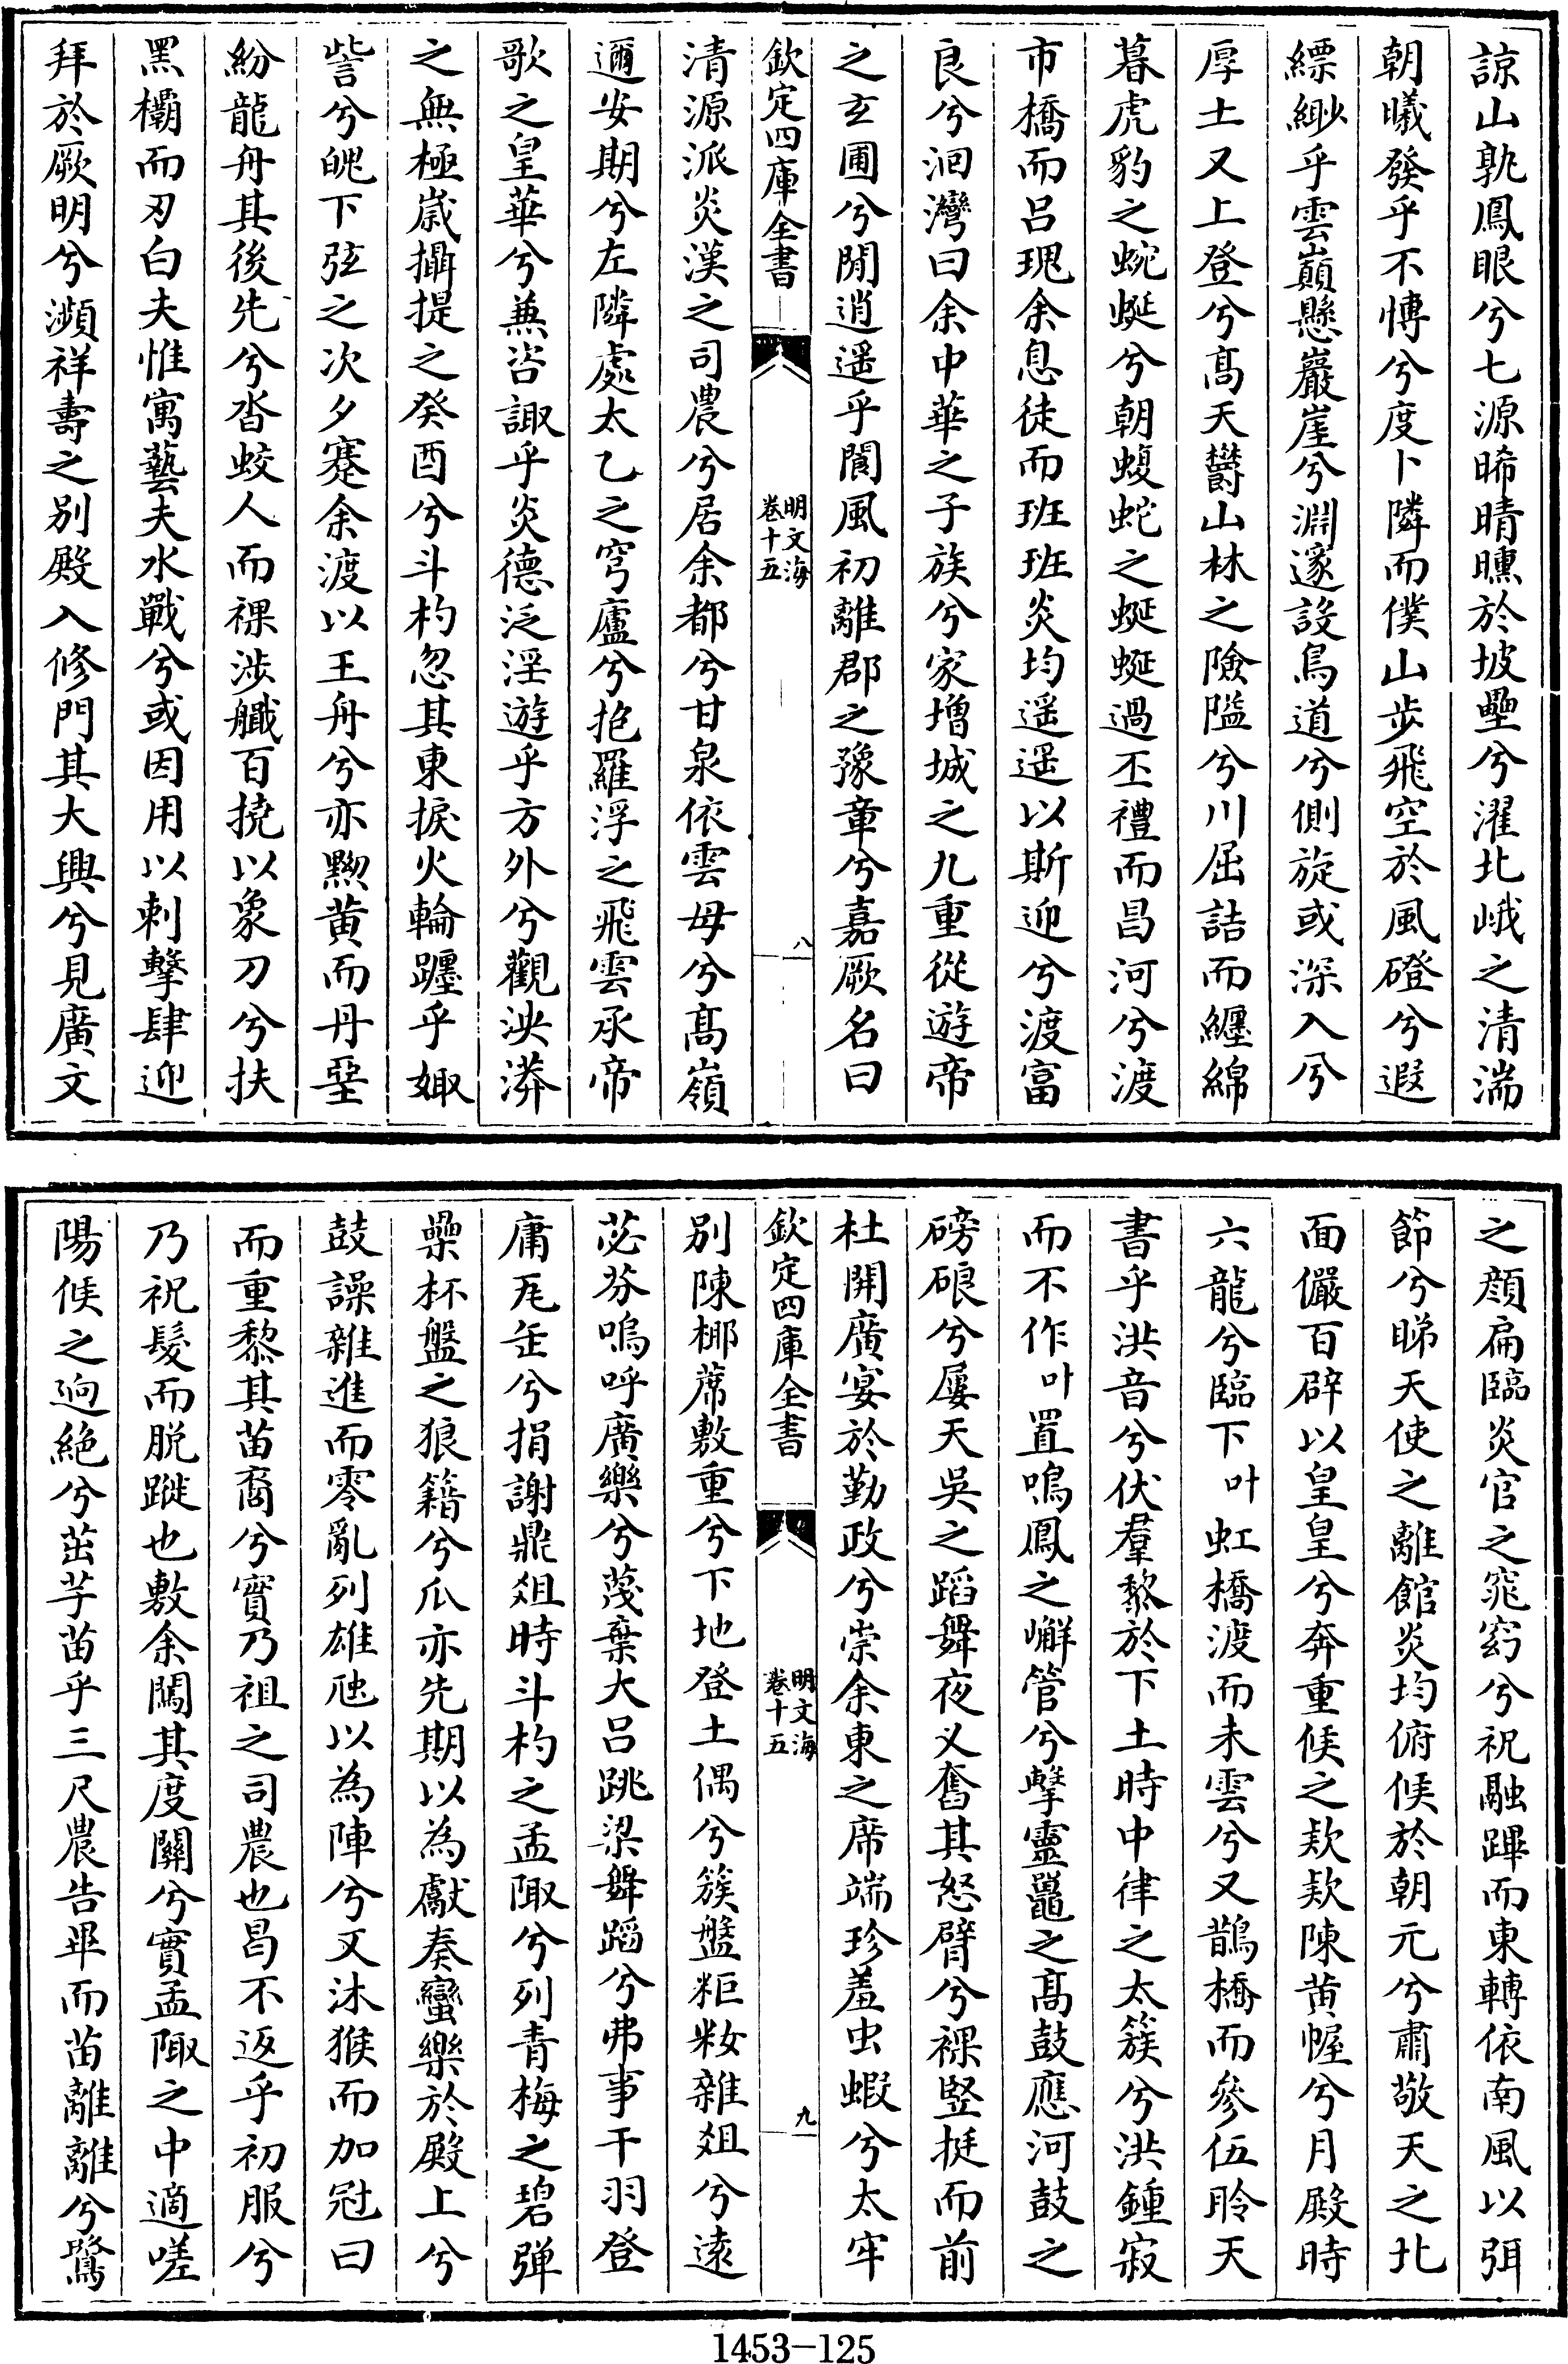 諒山孰鳳眼兮七源晞晴曛於坡壘兮濯北峨之清湍
朝曦發乎不慱兮度卜隣而僕山步飛空於風磴兮遐
縹緲乎雲巔懸巖崖兮淵邃設鳥道兮側旋或深入兮
厚土又上登兮髙天欝山林之險隘兮川屈詰而纒綿
暮虎豹之蜿蜒兮朝蝮蛇之蜒蜒過丕禮而昌河兮渡
市橋而吕瑰余息徒而班班炎均遥遥以斯迎兮渡富
良兮洄灣曰余中華之子族兮家增城之九重從遊帝
之玄圃兮閒逍遥乎閬風初離郡之豫章兮嘉厥名曰
欽定四庫全書
明文海
卷十五
八
清源派炎漢之司農兮居余都兮甘泉依雲母兮髙嶺
邇安期兮左隣處太乙之穹廬兮抱羅浮之飛雲承帝
歌之皇華兮兼咨諏乎炎德泛淫遊乎方外兮觀泱漭
之無極嵗攝提之癸酉兮斗杓忽其東捩火輪躔乎娵
訾兮皅下弦之次夕蹇余渡以王舟兮亦黝黄而丹堊
紛龍舟其後先兮沓蛟人而祼涉艤百撓以象刀兮扶
黑欛而刃白夫惟寓藝夫水戰兮或因用以刺擊肆迎
拜於厥明兮瀕祥壽之别殿入修門其大興兮見廣文
之顔扁臨炎官之窕窈兮祝融蹕而東轉依南風以弭
節兮睇天使之離館炎均俯候於朝元兮肅敬天之北
面儼百辟以皇皇兮奔重候之欵欵陳黄幄兮月殿時
六龍兮臨下叶虹橋渡而未雲兮又鵲橋而參伍聆天
書乎洪音兮伏羣黎於下土時中律之太簇兮洪鍾寂
而不作叶置鳴鳳之嶰管兮擊靈鼉之髙鼓應河鼓之
磅硠兮屢天吳之蹈舞夜乂奮其怒臂兮祼竪挺而前
杜開廣宴於勤政兮崇余東之席端珍羞虫蝦兮太牢
欽定四庫全書
明文海
卷十五
九
别陳梛蓆敷重兮下地登土偶兮簇盤粔籹雜俎兮逺
苾芬嗚呼廣樂兮蔑棄大吕跳梁舞蹈兮弗事干羽登
庸瓦缶兮捐謝鼎俎時斗杓之孟陬兮列青梅之碧彈
櫐杯盤之狼籍兮瓜亦先期以為獻奏蠻樂於殿上兮
鼓譟雜進而零亂列雄虺以為陣兮又沐猴而加冠曰
而重黎其苗裔兮實乃祖之司農也曷不返乎初服兮
乃祝髮而脱蹝也敷余闥其度關兮實孟陬之中適嗟
陽候之逈絶兮茁芋苗乎三尺農告畢而苗離離兮鷖
1453-125